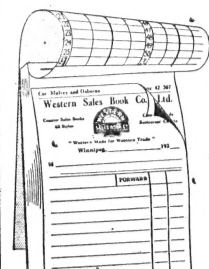 Cor Mulvey and Osborne
42 307
Western Sales Book Co. Ltd.
Counter Sales Books
All Styles
"Western Made for Western Trade"
Winnipeg, 193
M
FORWARD